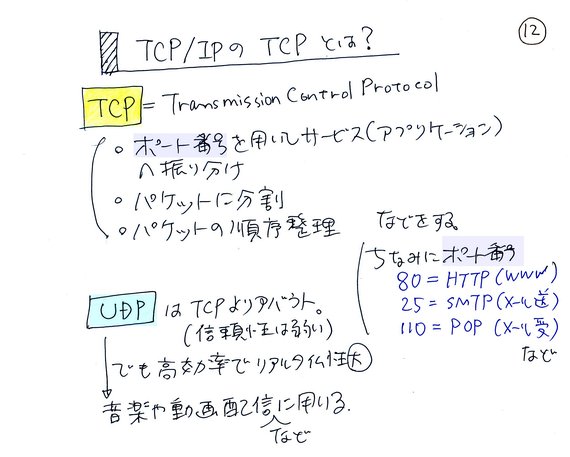 ⑫
TCP/IPの TCP とは?
TCP = Transmission Control Protocol
○ ポート番号を用いてサービス(アプリケーション)
へ振り分け
○ パケットに分割
○ パケットの順序整理
などをする。
ちなみにポート番号
80 = HTTP (WWW)
25 = SMTP (メール送)
110 = POP (メール受)
など
UDP は TCPよりアバウト。
(信頼性は弱い)
でも高効率でリアルタイム性大
音楽や動画配信に用いる.
など